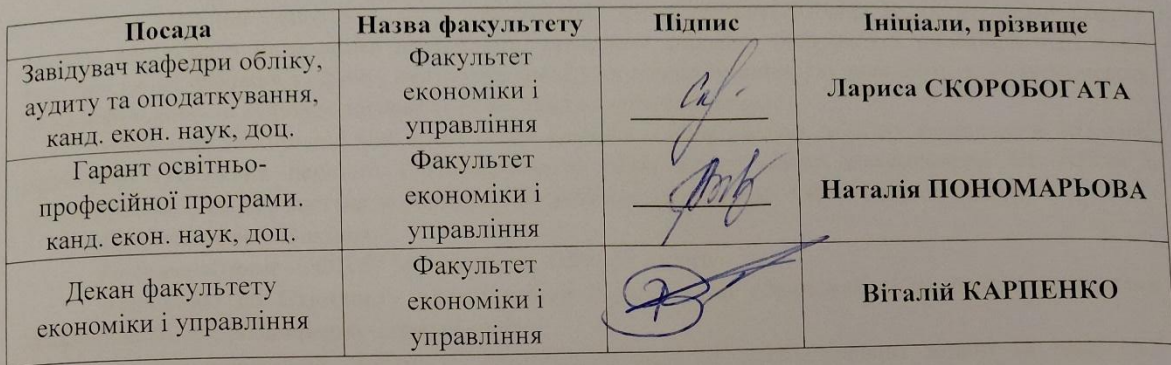 Посада Назва факультету Підпис Ініціали, прізвище
Завідувач кафедри обліку,
аудиту та оподаткування,
канд. екон. наук, доц.
Факультет
економіки і
управління
Лариса СКОРОБОГАТА
Гарант освітньо-
професійної програми.
канд. екон. наук, доц.
Факультет
економіки і
управління
Наталія ПОНОМАРЬОВА
Декан факультету
економіки і управління
Факультет
економіки і
управління
Віталій КАРПЕНКО